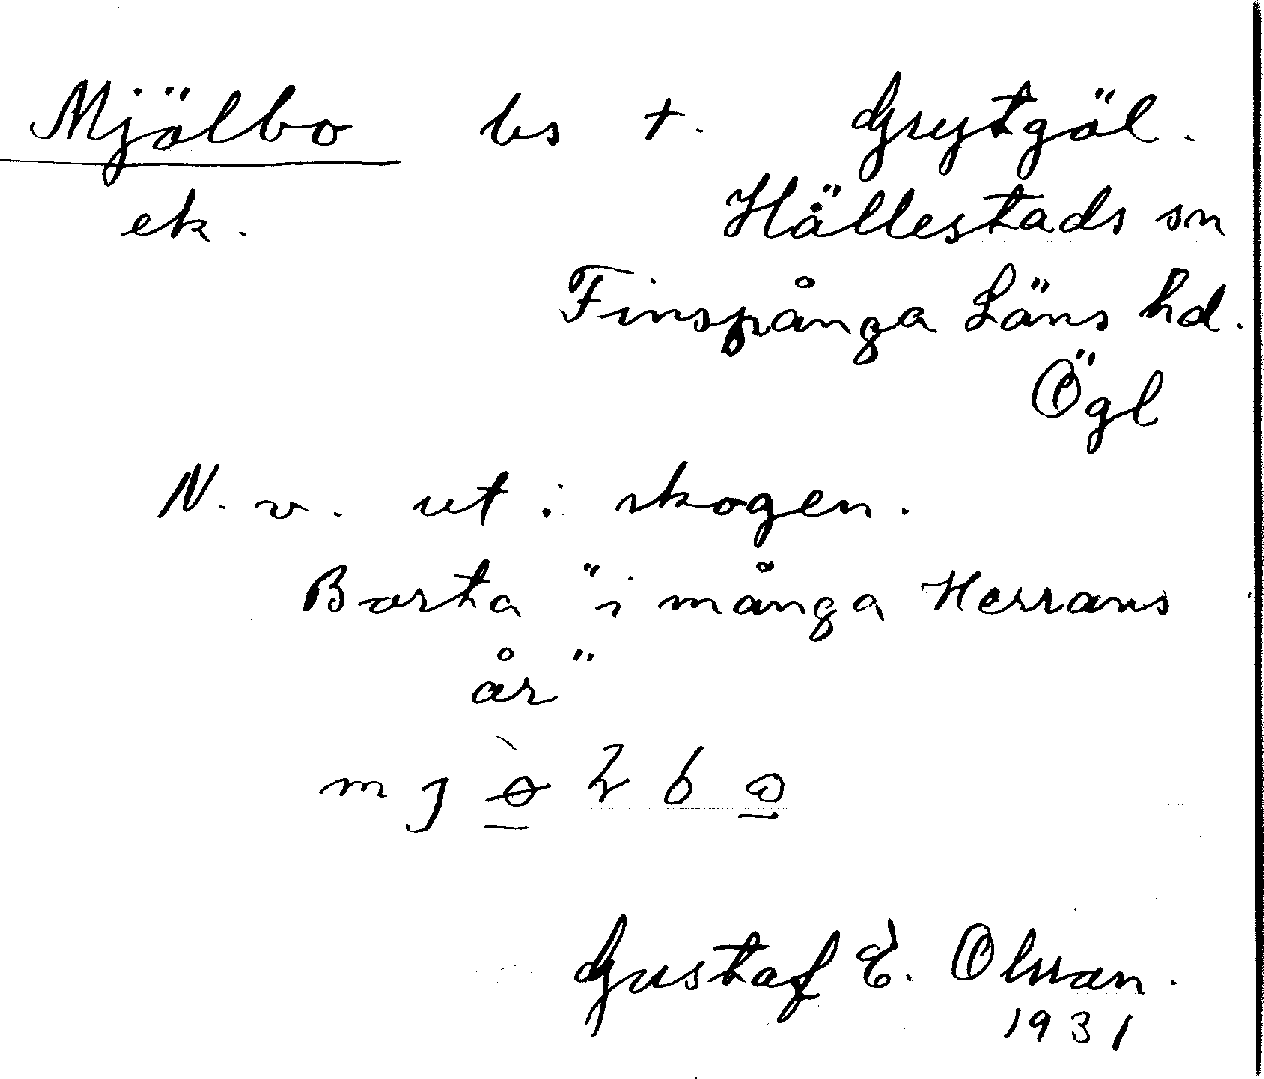 Mjölbo bs +. Grytgöl.
ek. Hällestads sn
Finspånga Läns hd.
Ögl
N. v. ut i skogen.
Borta "i många Herrans
år"
Gustaf E. Olsson.
1931